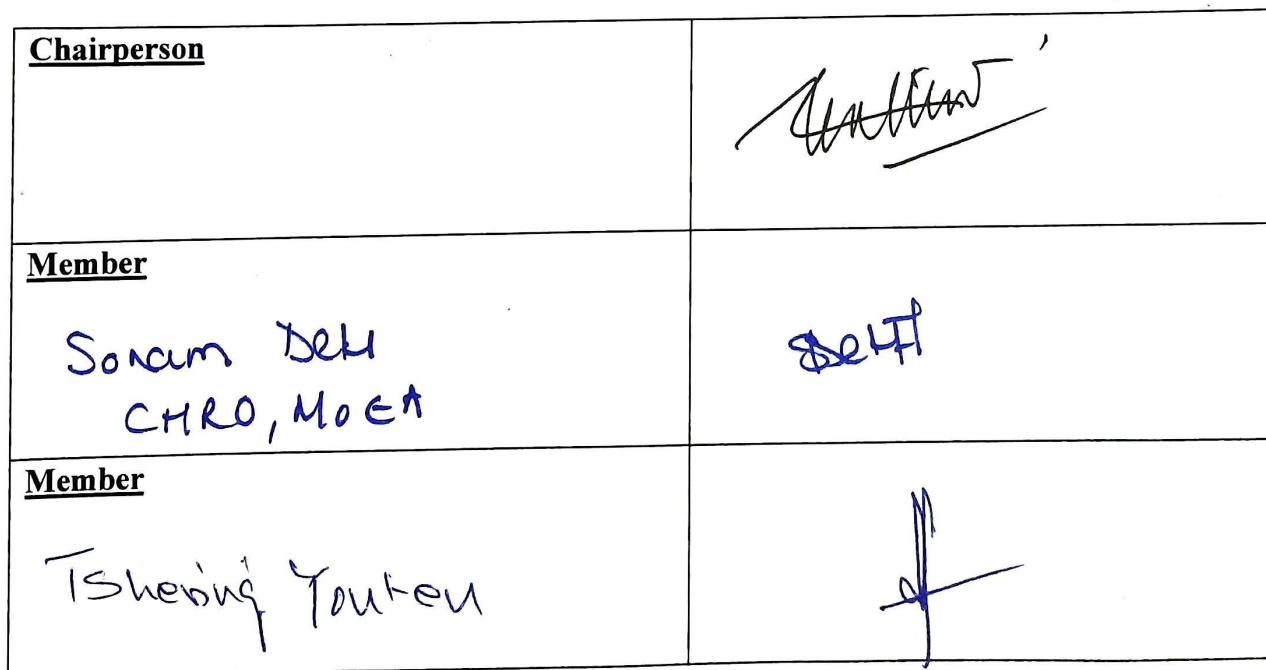 Chairperson
Member
Sonam Deki
CHRO, MoEA
Member
Tshering Yonten